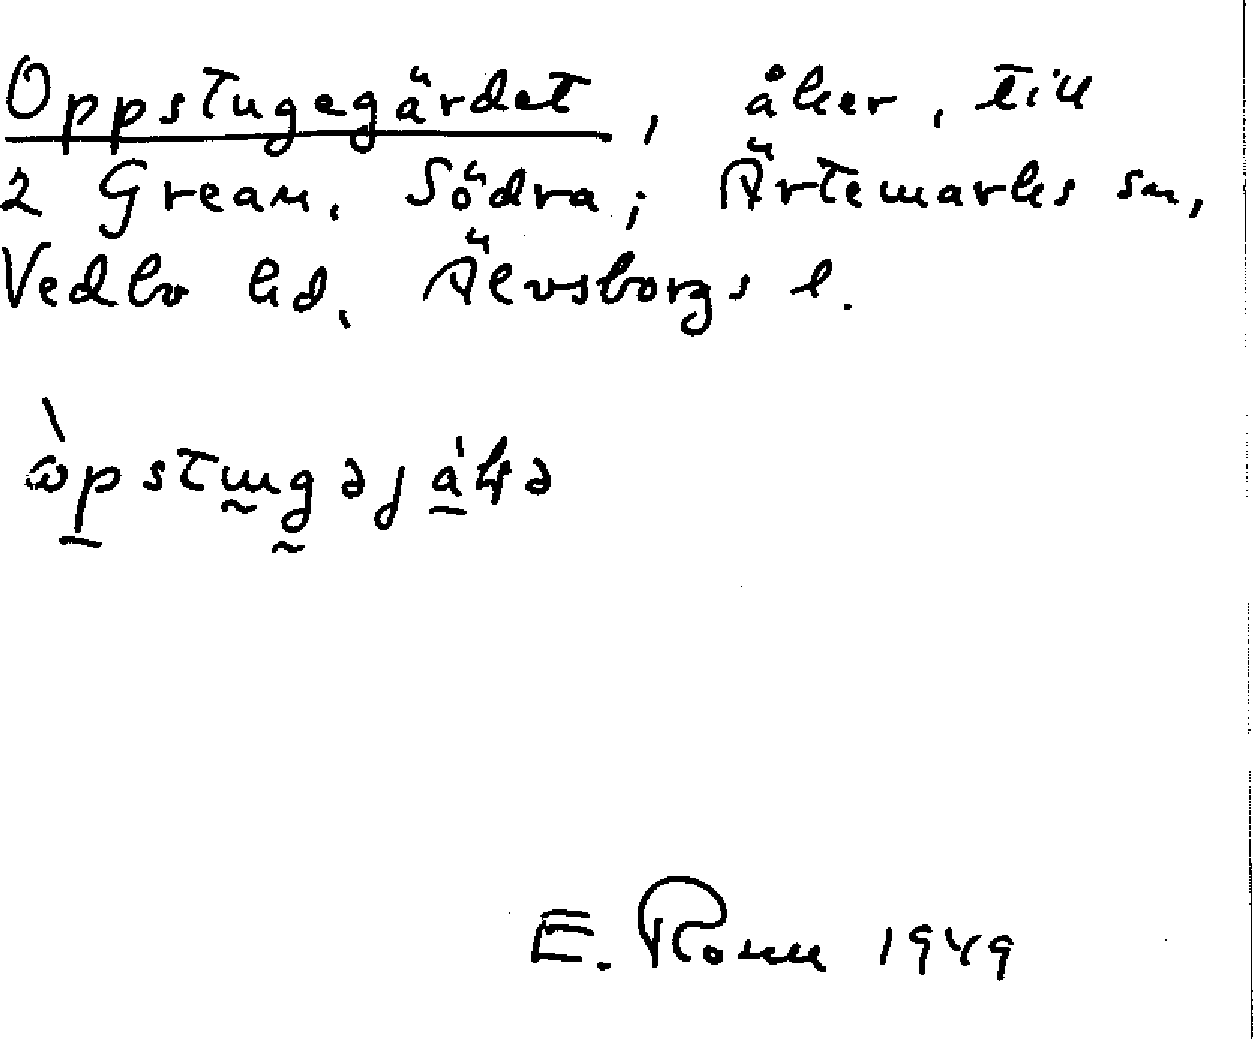 Oppstugegärdet, åker, till
2 Grean, Södra; Ärtemarks sn,
Vedbo hd, Älvsborgs l.
E. 1949